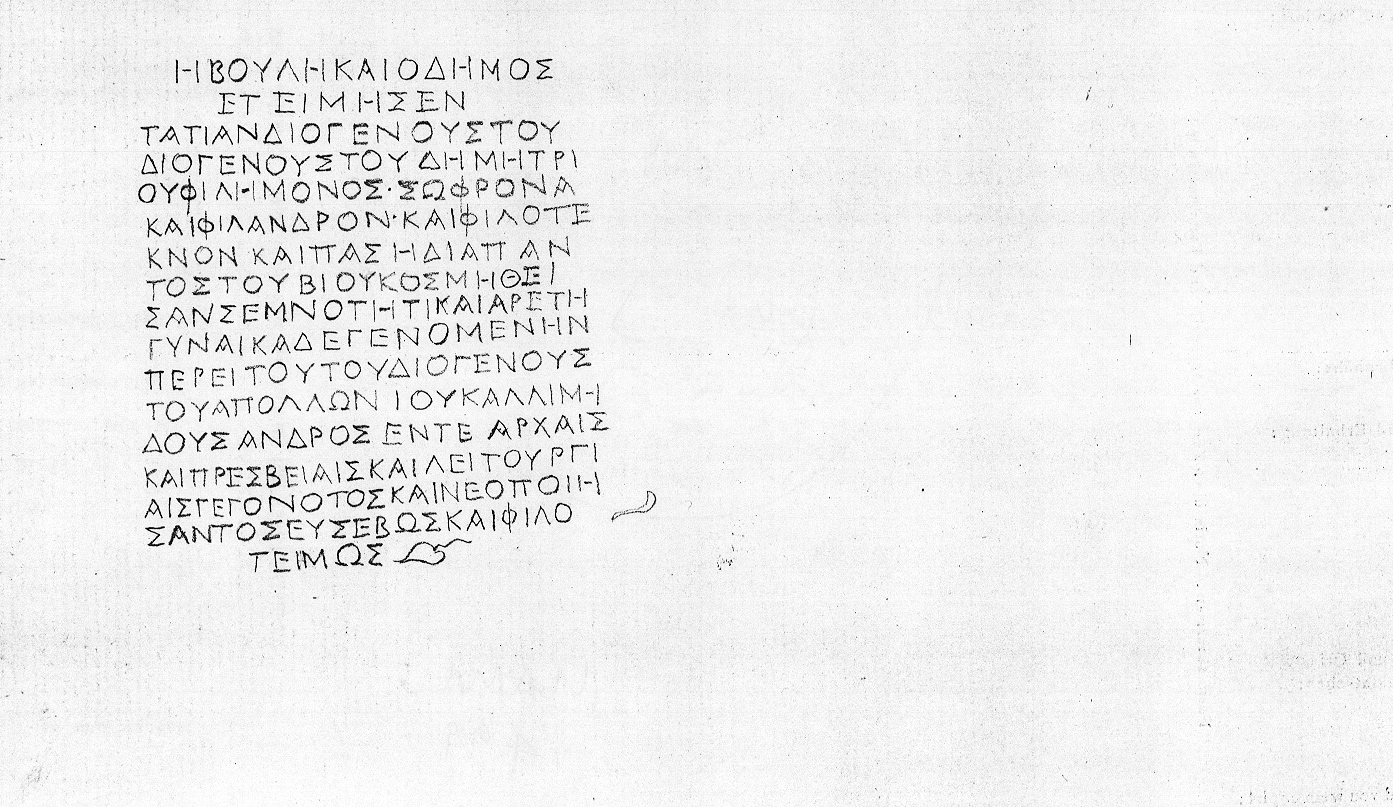 ΗΒΟΥΛΗΚΑΙΟΔΗΜΟΣ
ΕΤΕΙΜΗΣΕΝ
ΤΑΤΙΑΝΔΙΟΓΕΝΟΥΣΤΟΥ
ΔΙΟΓΕΝΟΥΣΤΟΥΔΗΜΗΤΡΙ
ΟΥΦΙΛΗΜΟΝΟΣ·ΣΩΦΡΟΝΑ
ΚΑΙΦΙΛΑΝΔΡΟΝ·ΚΑΙΦΙΛΟΤΕ
ΚΝΟΝΚΑΙΠΑΣΗΔΙΑΠΑΝ
ΤΟΣΤΟΥΒΙΟΥΚΟΣΜΗΘΕΙ
ΣΑΝΣΕΜΝΟΤΗΤΙΚΑΙΑΡΕΤΗ
ΓΥΝΑΙΚΑΔΕΓΕΝΟΜΕΝΗΝ
ΠΕΡΕΙΤΟΥΤΟΥΔΙΟΓΕΝΟΥΣ
ΤΟΥΑΠΟΛΛΩΝΙΟΥΚΑΛΛΙΜΗ
ΔΟΥΣΑΝΔΡΟΣΕΝΤΕΑΡΧΑΙΣ
ΚΑΙΠΡΕΣΒΕΙΑΙΣΚΑΙΛΕΙΤΟΥΡΓΙ
ΑΙΣΓΕΓΟΝΟΤΟΣΚΑΙΝΕΟΠΟΙΗ
ΣΑΝΤΟΣΕΥΣΕΒΩΣΚΑΙΦΙΛΟ
ΤΕΙΜΩΣ